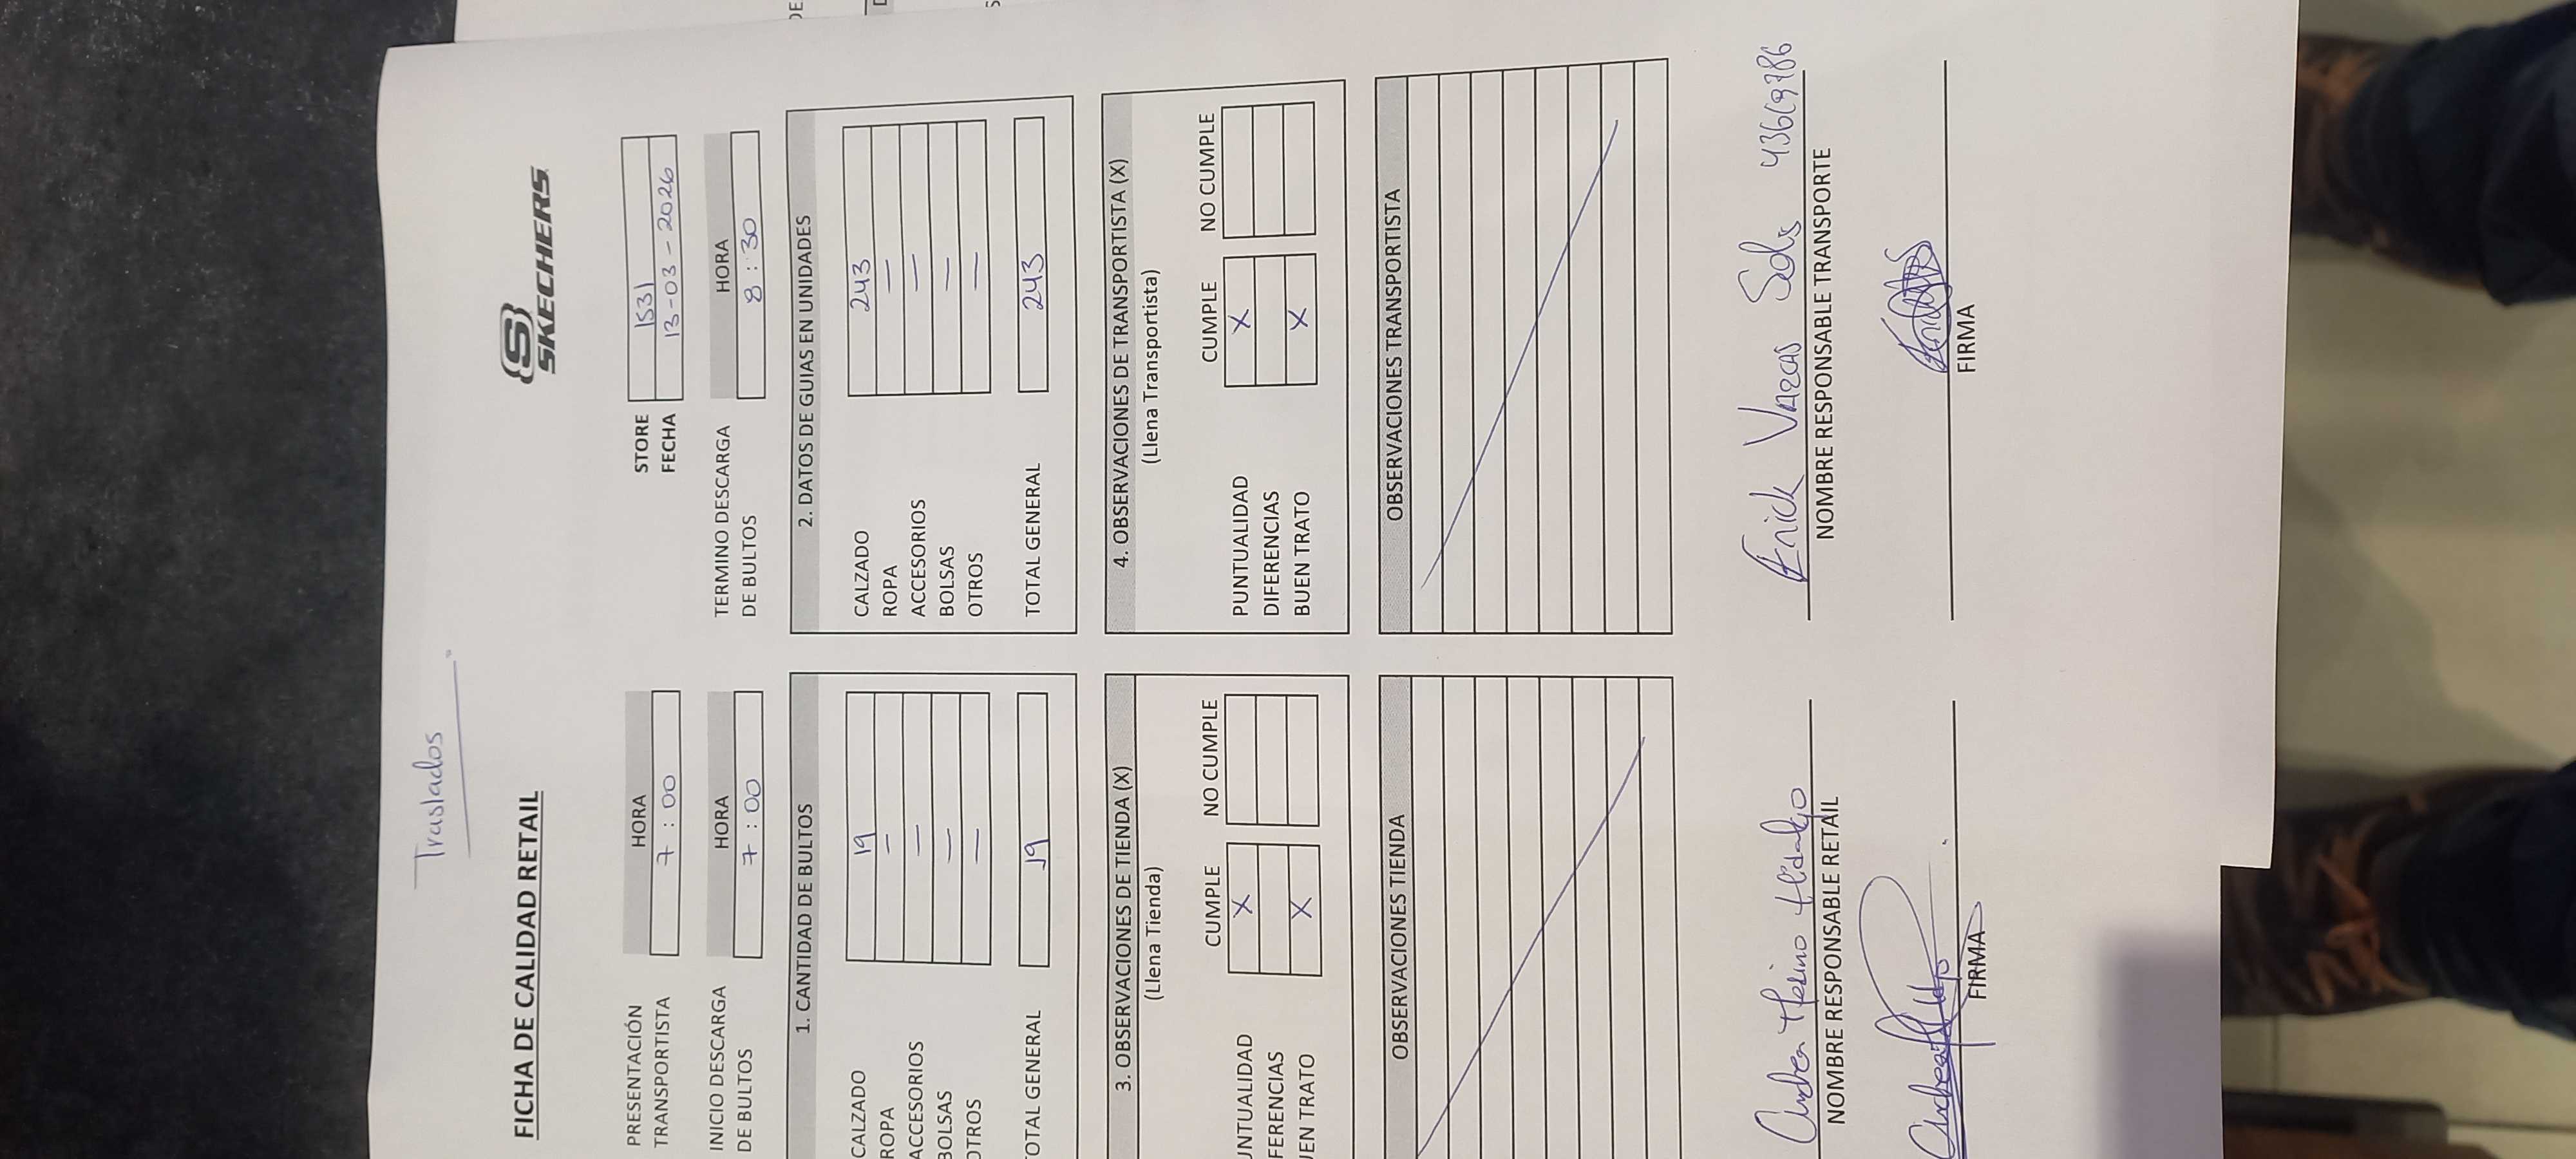 Traslados
FICHA DE CALIDAD RETAIL
SKECHERS
STORE 1531
FECHA 13-03-2026
PRESENTACIÓN TRANSPORTISTA HORA 7:00
INICIO DESCARGA DE BULTOS HORA 7:00
TERMINO DESCARGA DE BULTOS HORA 8:30
1. CANTIDAD DE BULTOS
CALZADO 19
ROPA —
ACCESORIOS —
BOLSAS —
OTROS —
TOTAL GENERAL 19
2. DATOS DE GUIAS EN UNIDADES
CALZADO 243
ROPA —
ACCESORIOS —
BOLSAS —
OTROS —
TOTAL GENERAL 243
3. OBSERVACIONES DE TIENDA (X)
(Llena Tienda)
CUMPLE NO CUMPLE
UNTUALIDAD X
FERENCIAS
UEN TRATO X
4. OBSERVACIONES DE TRANSPORTISTA (X)
(Llena Transportista)
CUMPLE NO CUMPLE
PUNTUALIDAD X
DIFERENCIAS
BUEN TRATO X
OBSERVACIONES TIENDA
OBSERVACIONES TRANSPORTISTA
Andrea Merino Hidalgo
NOMBRE RESPONSABLE RETAIL
FIRMA
Erick Vargas Solis
NOMBRE RESPONSABLE TRANSPORTE
FIRMA